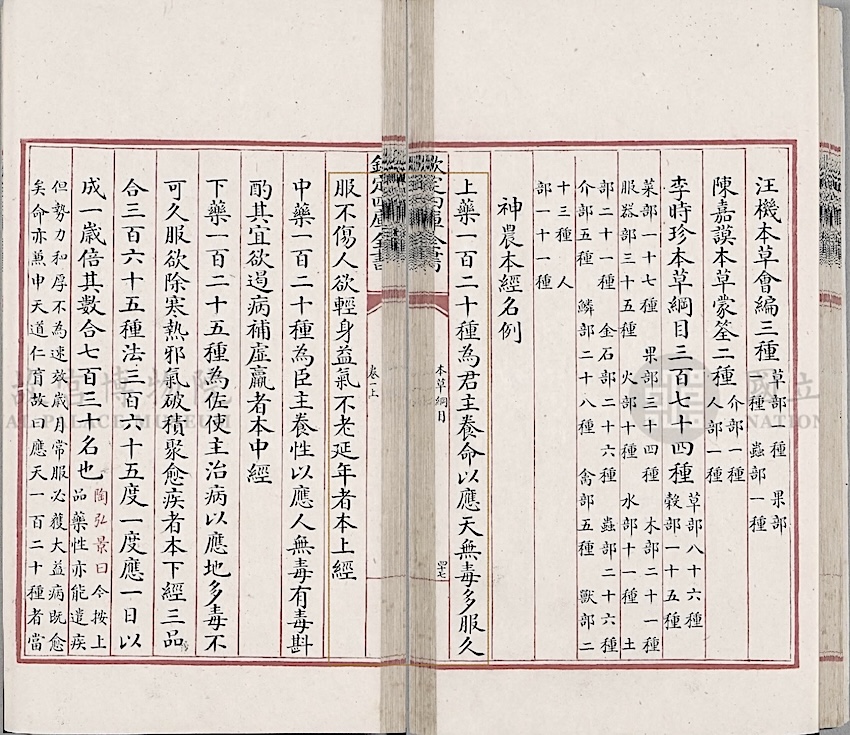 汪機本草會編三種 草部一種 果部一
種 蟲部一種
陳嘉謨本草蒙筌二種 介部一種
人部一種
李時珍本草綱目三百七十四種 草部八十六種
榖部一十五種
菜部一十七種 果部三十四種 木部二十一種
服器部三十五種 火部十種 水部十一種 土
部二十一種 金石部二十六種 蟲部二十六種
介部五種 鱗部二十八種 禽部五種 獸部二
十三種 人
部一十一種
神農本經名例
上藥一百二十種為君主養命以應天無毒多服久
欽定四庫全書
本草綱目
四七
欽定四庫全書
卷一上
服不傷人欲輕身益氣不老延年者本上經
中藥一百二十種為臣主養性以應人無毒有毒斟
酌其宜欲遏病補虛羸者本中經
下藥一百二十五種為佐使主治病以應地多毒不
可久服欲除寒熱邪氣破積聚愈疾者本下經三品
合三百六十五種法三百六十五度一度應一日以
成一歲倍其數合七百三十名也 陶弘景曰今按上
品藥性亦能遣疾
但勢力和厚不為速效歲月常服必獲大益病既愈
矣命亦兼申天道仁育故曰應天一百二十種者當
國立故宮博物院
NATIONAL PALACE MUSEUM